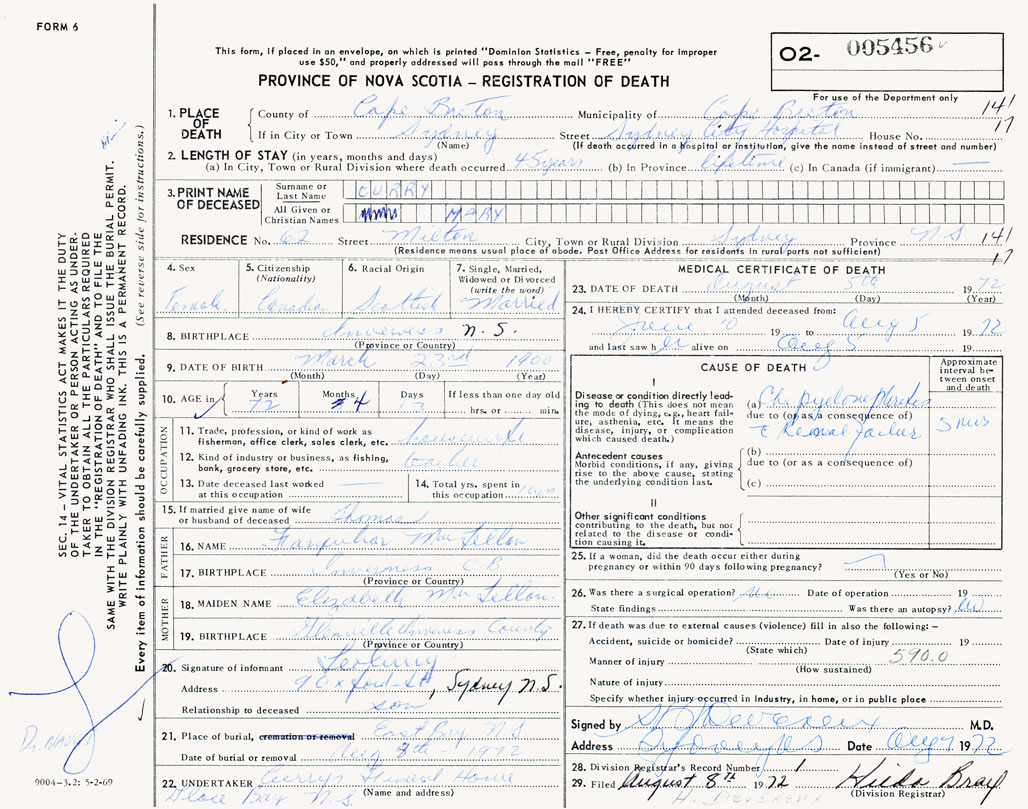 FORM 6
This form, if placed in an envelope, on which is printed "Dominion Statistics – Free, penalty for improper
use $50," and properly addressed will pass through the mail "FREE"
PROVINCE OF NOVA SCOTIA – REGISTRATION OF DEATH
O2- 005456
For use of the Department only
1. PLACE OF DEATH
County of Cape Breton Municipality of Cape Breton 141
If in City or Town Sydney Street Sydney City Hospital House No. 17
(Name) (If death occurred in a hospital or institution, give the name instead of street and number)
2. LENGTH OF STAY (in years, months and days)
(a) In City, Town or Rural Division where death occurred 45 years (b) In Province lifetime (c) In Canada (if immigrant) —
3. PRINT NAME OF DECEASED
Surname or Last Name CURRY
All Given or Christian Names MARY
RESIDENCE No. 62 Street Milton City, Town or Rural Division Sydney Province N S 141
(Residence means usual place of abode. Post Office Address for residents in rural parts not sufficient) 17
4. Sex
Female
5. Citizenship
(Nationality)
Canada
6. Racial Origin
7. Single, Married,
Widowed or Divorced
(write the word)
Married
8. BIRTHPLACE Inverness N.S.
(Province or Country)
9. DATE OF BIRTH March 23rd 1900
(Month) (Day) (Year)
10. AGE in
Years 72
Months 4
Days 3
If less than one day old
hrs. or min.
OCCUPATION
11. Trade, profession, or kind of work as
fisherman, office clerk, sales clerk, etc. housewife
12. Kind of industry or business, as fishing,
bank, grocery store, etc.
13. Date deceased last worked
at this occupation —
14. Total yrs. spent in
this occupation
15. If married give name of wife
or husband of deceased Thomas
FATHER
16. NAME Farquhar Mac Lellan
17. BIRTHPLACE Inverness C.B
(Province or Country)
MOTHER
18. MAIDEN NAME Elizabeth Mac Lellan
19. BIRTHPLACE Glenville Inverness County
(Province or Country)
20. Signature of informant
Address 9 Oxford St, Sydney N.S.
Relationship to deceased son
21. Place of burial, cremation or removal East Bay N S
Date of burial or removal Aug 8th - 1972
22. UNDERTAKER Curry's Funeral Home
Glace Bay N.S. (Name and address)
MEDICAL CERTIFICATE OF DEATH
23. DATE OF DEATH August 5th 1972
(Month) (Day) (Year)
24. I HEREBY CERTIFY that I attended deceased from:
June 10 19 to Aug 5 1972
and last saw her alive on Aug 5 1972
CAUSE OF DEATH
Approximate
interval be-
tween onset
and death
I
Disease or condition directly lead-
ing to death (This does not mean
the mode of dying, e.g., heart fail-
ure, asthenia, etc. It means the
disease, injury, or complication
which caused death.)
(a) Ch. pyelonephritis
due to (or as a consequence of)
c Renal failure
Antecedent causes
Morbid conditions, if any, giving
rise to the above cause, stating
the underlying condition last.
(b)
due to (or as a consequence of)
(c)
II
Other significant conditions
contributing to the death, but not
related to the disease or condi-
tion causing it.
25. If a woman, did the death occur either during
pregnancy or within 90 days following pregnancy?
(Yes or No)
26. Was there a surgical operation? no Date of operation 19
State findings Was there an autopsy? no
27. If death was due to external causes (violence) fill in also the following: –
Accident, suicide or homicide? Date of injury 19
(State which)
Manner of injury 590.0
(How sustained)
Nature of injury
Specify whether injury occurred in Industry, in home, or in public place
Signed by Devereux M.D.
Address Date Aug 1972
28. Division Registrar's Record Number 1
29. Filed August 8th 1972 Hilda Bray
H. DEVEREUX (Division Registrar)
SEC. 14 – VITAL STATISTICS ACT MAKES IT THE DUTY
OF THE UNDERTAKER OR PERSON ACTING AS UNDER-
TAKER TO OBTAIN ALL THE PARTICULARS REQUIRED
IN THE "REGISTRATION OF DEATH" AND TO FILE THE
SAME WITH THE DIVISION REGISTRAR WHO SHALL ISSUE THE BURIAL PERMIT.
WRITE PLAINLY WITH UNFADING INK. THIS IS A PERMANENT RECORD.
Every item of information should be carefully supplied. (See reverse side for instructions.)
9004-3.2: 5-2-69